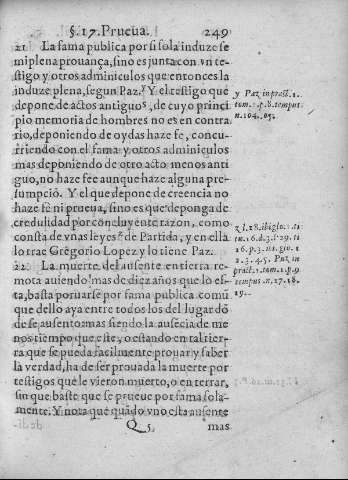 §.17. Prueua. 249
21 La fama publica por si sola induze se
miplena prouança, sino es junta con vn te-
stigo y otros adminiculos que entonces la
induze plena, segun Paz.y Y el testigo que
depone de actos antiguos, de cuyo princi
pio memoria de hombres no es en contra
rio, deponiendo de oydas haze fe, concu-
rriendo con el fama y otros adminiculos
mas deponiendo de otro acto menos anti
guo, no haze fee aunque haya alguna pre-
sumpciõ. Y el que depone de creencia no
haze fe ni prueua, sino es que deponga de
credulidad por concluyente razon, como
consta de vnas leyes z de Partida, y en ella
lo trae Gregorio Lopez y lo tiene Paz.
22 La muerte del ausente en tierra re-
mota auiendo mas de diez años que lo es-
ta, basta prouarse por fama publica comũ
que dello aya entre todos los del lugar dõ
de se ausento mas siendo la ausẽcia de me
nos tiempo que este, o estando en tal tier-
ra que se pueda facilmente prouar y saber
la verdad, ha de ser prouada la muerte por
testigos que le vieron muerto, o enterrar,
sin que baste que se prueue por fama sola-
mente. Y nota que quãdo vno esta ausente
Q 5 mas
y Paz in pract. 1.
tom. 1. p. 8. tempus
n. 104. 105.
z l. 28. ibi glo. 1. ti
tu. 16. d. 3. l. 29. ti
16. p. 3. ibi glo. 1
2. 3. 4. 5. Paz in
pract. 1. tom. 1. p. 9
tempus .n. 17. 18.
19.